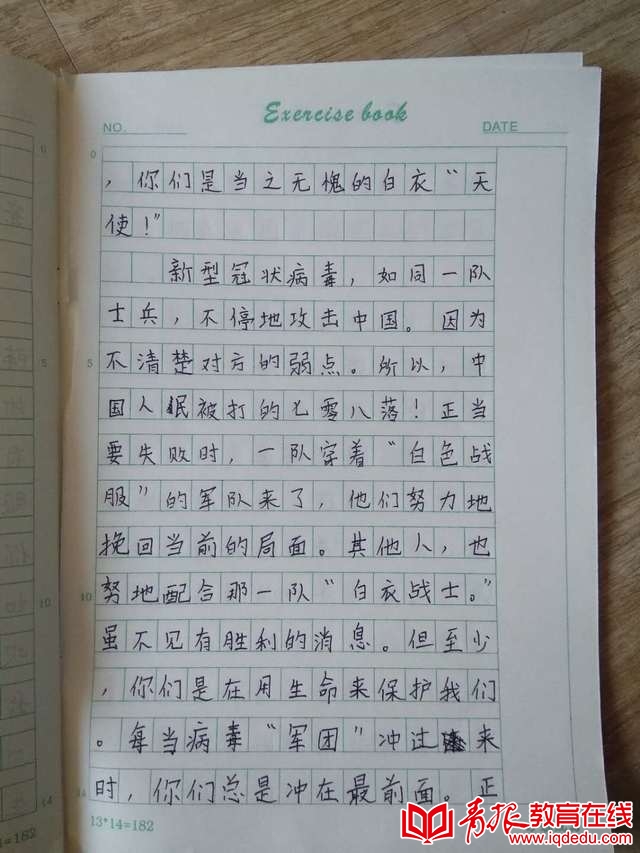 Exercise book
NO.
DATE
0
，你们是当之无愧的白衣“天
使！”
新型冠状病毒，如同一队
士兵，不停地攻击中国。因为
5 不清楚对方的弱点。所以，中
国人民被打的七零八落！正当
要失败时，一队穿着“白色战
服”的军队来了，他们努力地
挽回当前的局面。其他人，也
10 努地配合那一队“白衣战士。”
虽不见有胜利的消息。但至少
，你们是在用生命来保护我们
。每当病毒“军团”冲过来
14 时，你们总是冲在最前面。正
13*14=182
青报教育在线
www.iqdedu.com